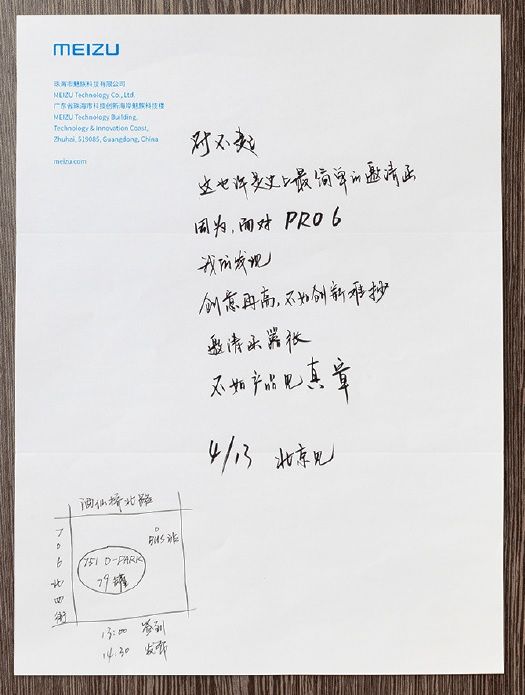 MEIZU
珠海市魅族科技有限公司
MEIZU Technology Co., Ltd.
广东省珠海市科技创新海岸魅族科技楼
MEIZU Technology Building,
Technology & Innovation Coast,
Zhuhai, 519085, Guangdong, China
meizu.com
对不起
这也许是史上最简单的邀请函
因为,面对 PRO 6
我们发现
创意再高,不如创新难抄
邀请函嚣张
不如产品见真章
4/13 北京见
酒仙桥北路
706北四街
BUS站
751 D-PARK
79罐
13:00 签到
14:30 发布